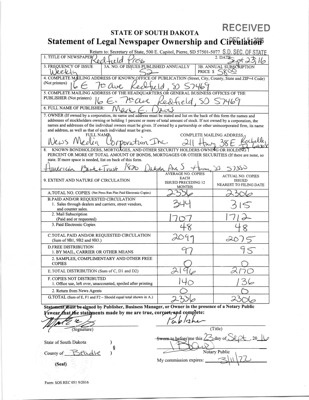 RECEIVED
STATE OF SOUTH DAKOTA
Statement of Legal Newspaper Ownership and Circulation
Return to: Secretary of State, 500 E. Capitol, Pierre, SD 57501-5077 S.D. SEC. OF STATE
1. TITLE OF NEWSPAPER Redfield Press
3. FREQUENCY OF ISSUE Weekly
3A. NO. OF ISSUES PUBLISHED ANNUALLY 52
3B. ANNUAL SUBSCRIPTION PRICE $
4. COMPLETE MAILING ADDRESS OF KNOWN OFFICE OF PUBLICATION (Street, City, County, State and ZIP+4 Code)
(Not printers) 16 E 7th Ave Redfield, SD 57469
5. COMPLETE MAILING ADDRESS OF THE HEADQUARTERS OR GENERAL BUSINESS OFFICES OF THE
PUBLISHER (Not printer) 16 E. 7th Ave Redfield, SD 57469
6. FULL NAME OF PUBLISHER: Mark E. Davis
7. OWNER (If owned by a corporation, its name and address must be stated and list on the back of this form the names and
addresses of stockholders owning or holding 1 percent or more of total amount of stock. If not owned by a corporation, the
names and addresses of the individual owners must be given. If owned by a partnership or other unincorporated firm, its name
and address, as well as that of each individual must be given.
FULL NAME COMPLETE MAILING ADDRESS
News Media Corporation Inc 211 Hwy 38E Rochelle,
8. KNOWN BONDHOLDERS, MORTGAGEES, AND OTHER SECURITY HOLDERS OWNING OR HOLDING 1
PERCENT OR MORE OF TOTAL AMOUNT OF BONDS, MORTGAGES OR OTHER SECURITIES (If there are none, so
state. If more space is needed, list on back of this form.
American Bank & Trust 1820 Dakota Ave S
9. EXTENT AND NATURE OF CIRCULATION
AVERAGE NO. COPIES EACH ISSUED PRECEDING 12 MONTHS
ACTUAL NO. COPIES ISSUED NEAREST TO FILING DATE
A. TOTAL NO. COPIES (Net Press Run Plus Paid Electronic Copies) 2336 2306
B. PAID AND/OR REQUESTED CIRCULATION
1. Sales through dealers and carriers, street vendors, and counter sales. 344 315
2. Mail Subscription (Paid and or requested) 1707 1712
3. Paid Electronic Copies 48 48
C. TOTAL PAID AND/OR REQUESTED CIRCULATION (Sum of 9B1, 9B2 and 9B3.) 2099 2075
D. FREE DISTRIBUTION
1. BY MAIL, CARRIER OR OTHER MEANS 97 95
2. SAMPLES, COMPLIMENTARY AND OTHER FREE COPIES 0 0
E. TOTAL DISTRIBUTION (Sum of C, D1 and D2) 2196 2170
F. COPIES NOT DISTRIBUTED
1. Office use, left over, unaccounted, spoiled after printing 140 136
2. Return from News Agents 0 0
G. TOTAL (Sum of E, F1 and F2 - Should equal total shown in A.) 2336 2306
Statement must be signed by Publisher, Business Manager, or Owner in the presence of a Notary Public
I swear that the statements made by me are true, correct, and complete:
Publisher
(Signature) (Title)
State of South Dakota ) Sworn to before me this 23 day of Sept, 20
County of )
Notary Public
(Seal) My commission expires:
Form: SOS REC 051 9/2016